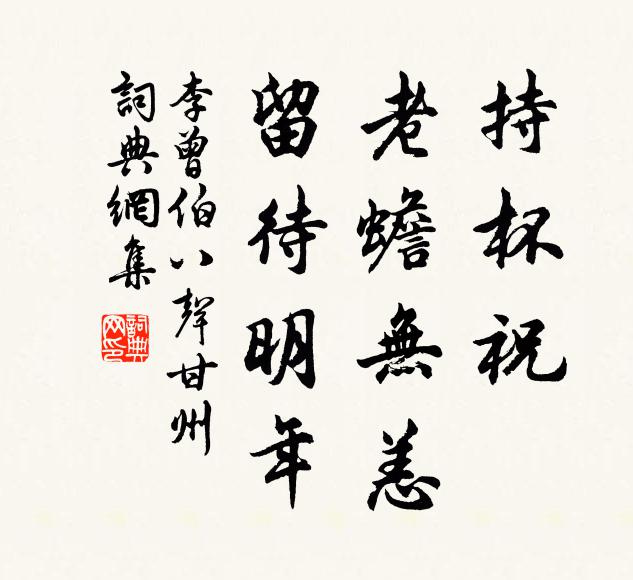 持杯祝
老蟾無恙
留待明年
李曾伯八聲甘州
詞典網集
詞典網印